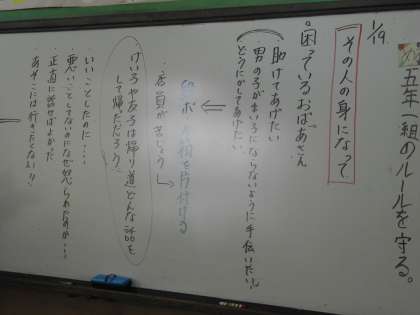 五年一組のルールを守る。
1/19
その人の身になって
・困っているおばあさん
助けてあげたい
男の子がまいごにならないように手伝いたい。
どうにかしてあげたい。
を片付ける
・店員が
・けいろや友子は帰り道どんな話を
して帰っただろう?
・いいことしたのに・・・
・悪いことしてないのになぜ怒られたのか・・・
・正直に話せばよかった
・あそこには行きたくない!